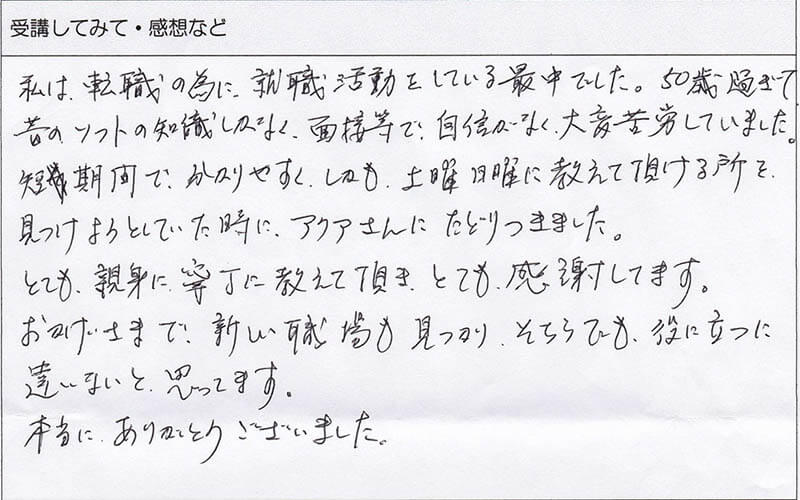 受講してみて・感想など
私は、転職の為に、就職活動をしている最中でした。50歳過ぎて
昔のソフトの知識しかなく、面接等で、自信がなく、大変苦労していました。
短期間で、分かりやすく、しかも、土曜日曜に教えて頂ける所を、
見つけようとしていた時に、アクアさんにたどりつきました。
とても、親身に、寧丁に教えて頂き、とても、感謝してます。
おかげさまで、新しい職場も見つかり、そちらでも、役に立つに
違いないと、思ってます。
本当に、ありがとうございました。